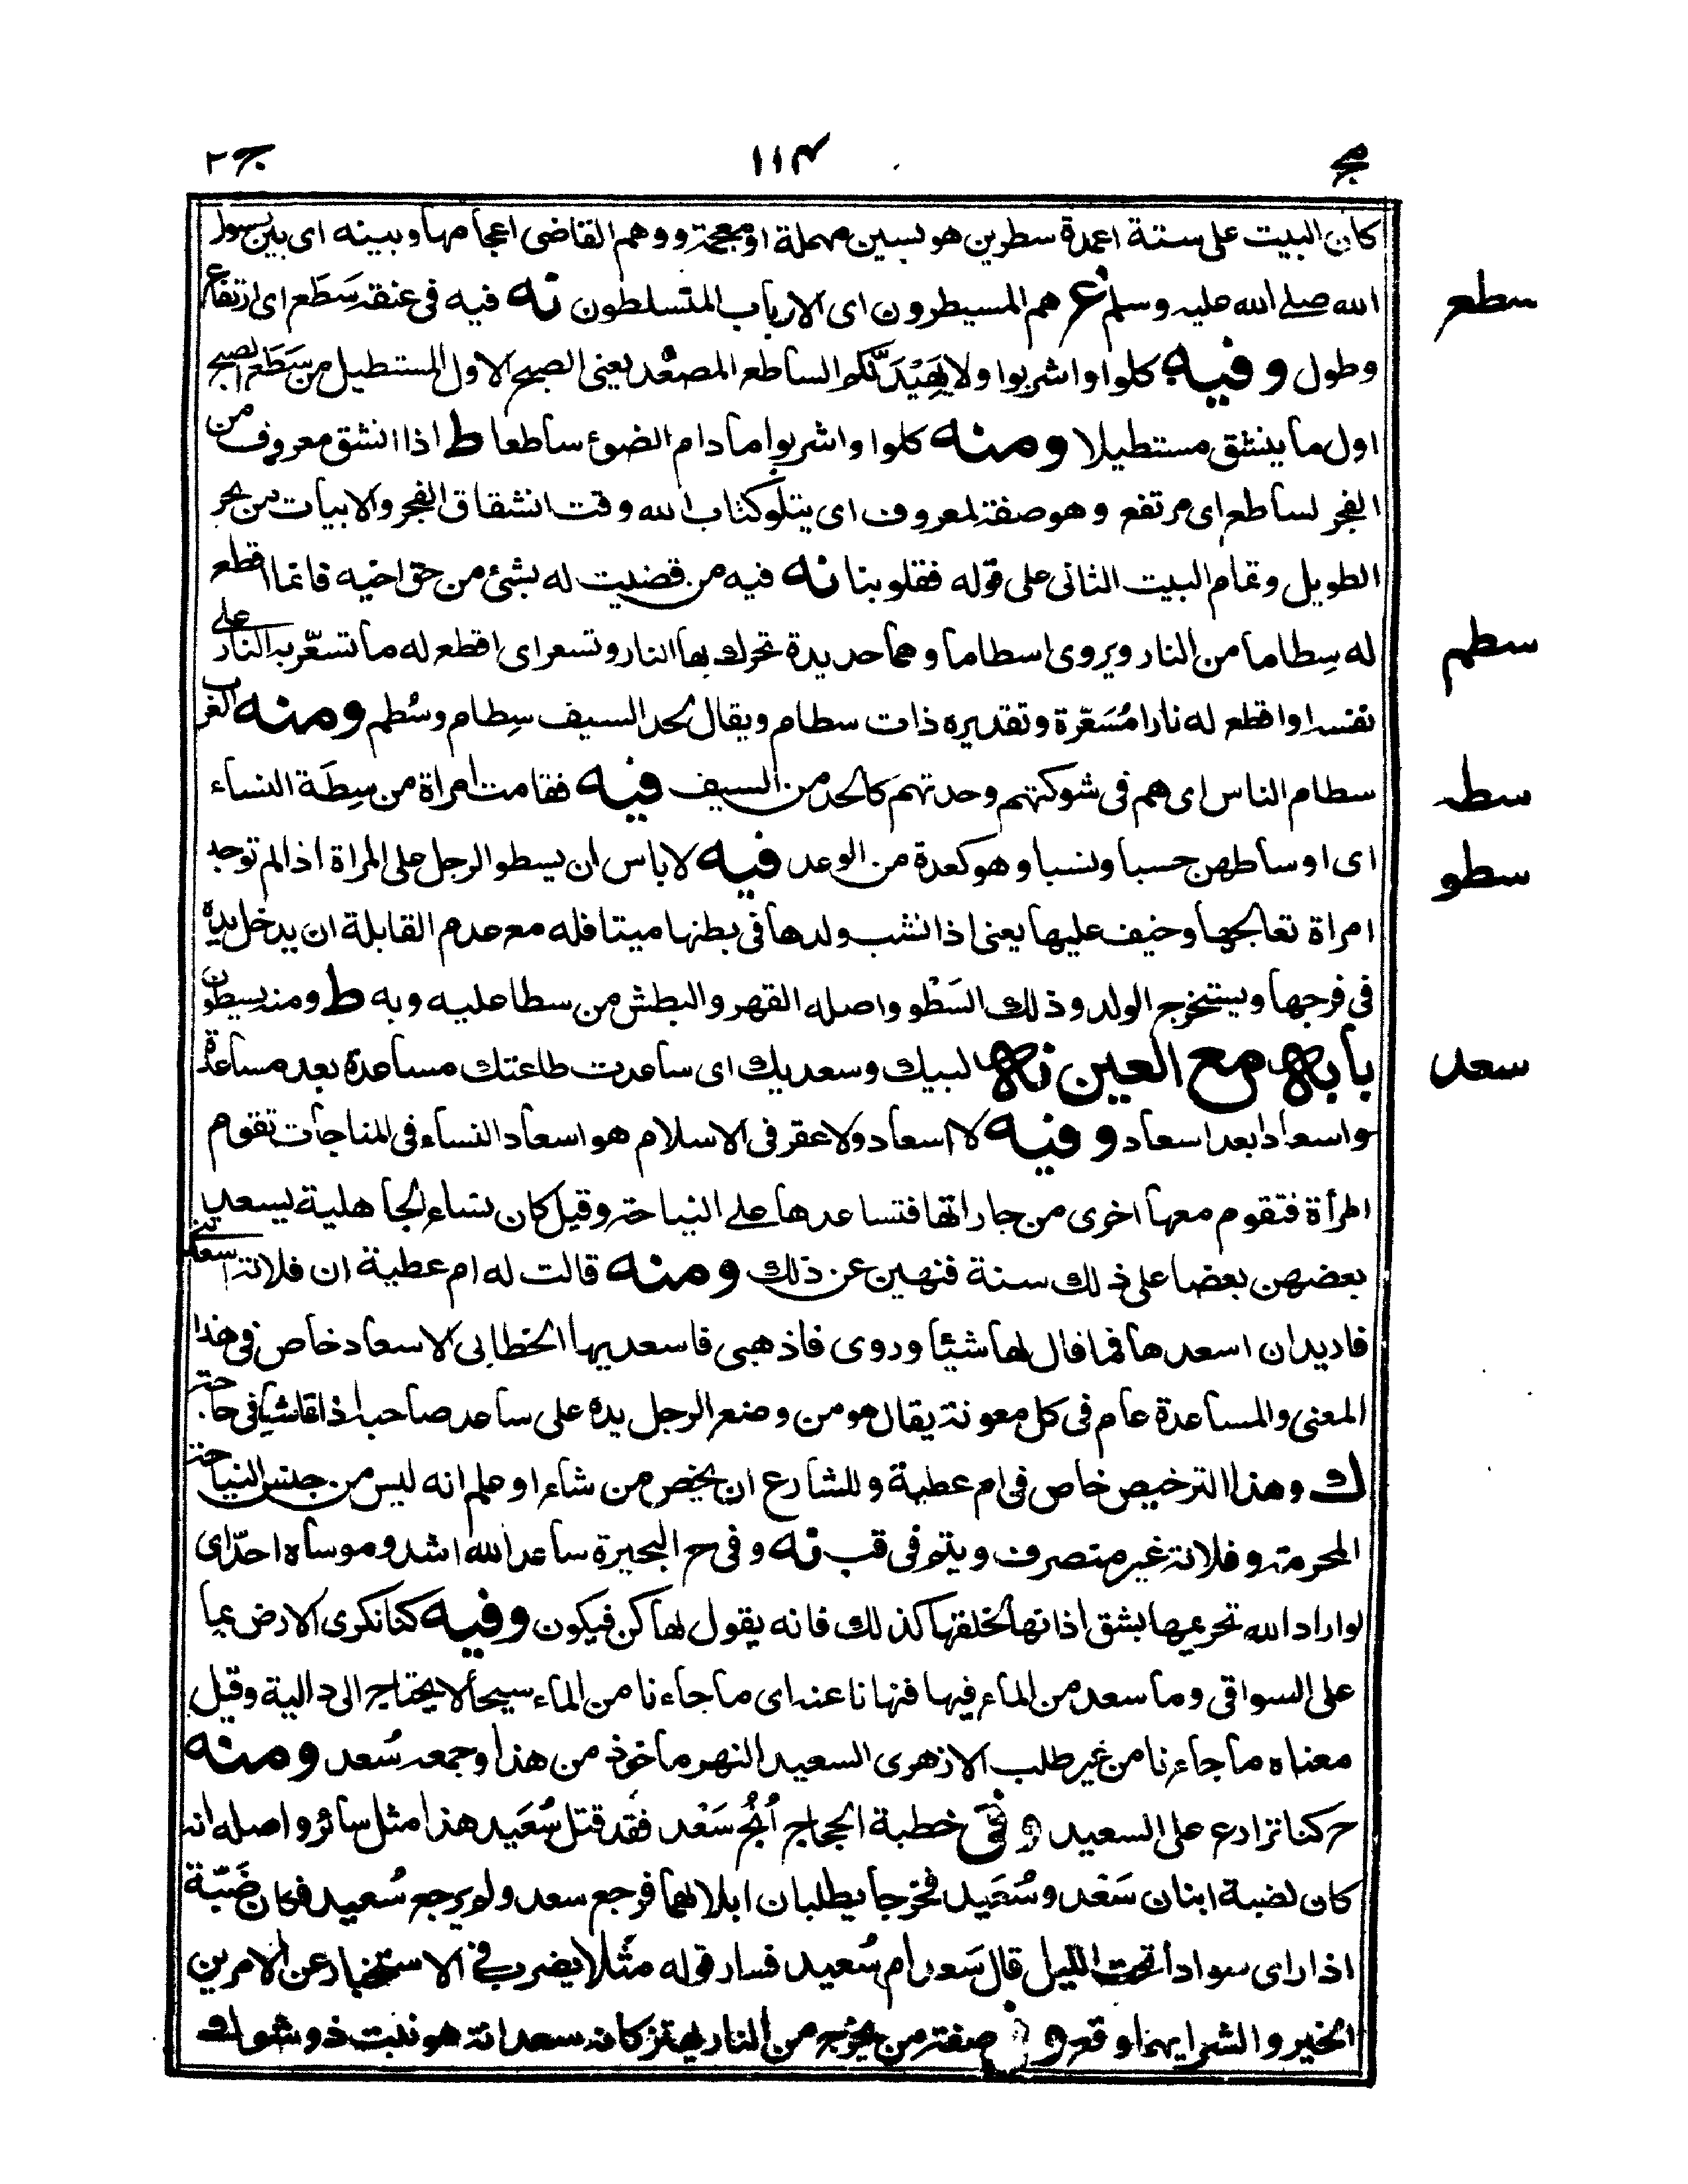 مج ١١٤ ج ٢
كان البيت على ستة اعمدة سطرين هو بسين مهملة او معجمة ووهم القاضى اعجامها وبينه اى بين رسول
الله صلے الله عليه وسلم غ هم المسيطرون اى الارباب المتسلطون نه فيه فى عنقه سَطَع اى ارتفاع
سطع
وطول وفيه كلوا واشربوا ولا يَهِيْدَنَّكم الساطع المصعّد يعنى الصبح الاول المستطيل من سَطَع الصبح
اول ما ينشق مستطيلا ومنه كلوا واشربوا ما دام الضوئ ساطعا ط اذا انشق معروف من
الفجر لساطع اى مرتفع وهو صفة لمعروف اى يتلو كتاب الله وقت انشقاق الفجر والابيات من بحر
الطويل وتمام البيت الثانى على قوله فقلوبنا نه فيه من قضيت له بشئ من حق اخيه فانما اقطع
له سِطاما من النار ويروى اسطاما وهما حديدة تحرك بها النار وتسعر اى اقطع له ما تسعّر به النار على
سطم
نفسه او اقطع له نارا مُسَعّرة وتقديره ذات سطام ويقال لحد السيف سِطام وسُطم ومنه العرب
سطام الناس اى هم فى شوكتهم وحدتهم كالحد من السيف فيه فقامت امراة من سِطَة النساء
سطه
اى اوساطهن حسبا ونسبا وهو كعدة من الوعد فيه لا باس ان يسطو الرجل على المراة اذا لم توجد
سطو
امراة تعالجها وخيف عليها يعنى اذا نشب ولدها فى بطنها ميتا فله مع عدم القابلة ان يدخل يده
فى فرجها ويستخرج الولد وذلك السَطْو واصله القهر والبطش من سطا عليه وبه ط ومنه يسطون
بابه مع العين نه لبيك وسعديك اى ساعدت طاعتك مساعدة بعد مساعدة
سعد
واسعادا بعد اسعاد وفيه لا اسعاد ولا عقر فى الاسلام هو اسعاد النساء فى المناحات تقوم
المرأة فتقوم معها اخرى من جاراتها فتساعدها على النياحة وقيل كان نساء الجاهلية يسعد
بعضهن بعضا على ذلك سنة فنهين عن ذلك ومنه قالت له ام عطية ان فلانة اسعدتنى
فاريد ان اسعدها فما قال لها شيئا وروى فاذهبى فاسعديها الخطابى الاسعاد خاص فى هذا
المعنى والمساعدة عام فى كل معونة يقال هو من وضع الرجل يده على ساعد صاحبه اذا تماشيا فى حاجة
ك وهذا الترخيص خاص فى ام عطية وللشارع ان يخص من شاء او علم انه ليس من جنس النياحة
المحرمة وفلانة غير متصرف ويتم فى قب نه وفى ح البحيرة ساعد الله اشد وموساه احدّ اى
لو اراد الله تحريمها بشق اذانها لخلقها كذلك فانه يقول لها كن فيكون وفيه كنا نكرى الارض بما
على السواقى وما سعد من الماء فيها فنهانا عنه اى ما جاءنا من الماء سيحا لا يحتاج الى دالية وقيل
معناه ما جاءنا من غير طلب الازهرى السعيد النهر ماخوذ من هذا وجمعه سُعد ومنه
ح كنا نزارع على السعيد وفى خطبة الحجاج اُنجُ سَعْد فقد قتل سُعَيد هذا مثل سائر واصله انه
كان لضبة ابنان سَعْد وسُعَيد فخرجا يطلبان ابلا لهما فرجع سعد ولم يرجع سُعيد فكان ضَبّة
اذا راى سوادا تحت الليل قال سَعد ام سُعيد فسار قوله مثلا يضرب فى الاستخبار عن الامرين
الخير والشر ايهما وقع و صفة من يخرج من النار يهتز كانه سعدانة هو نبت ذو شوك